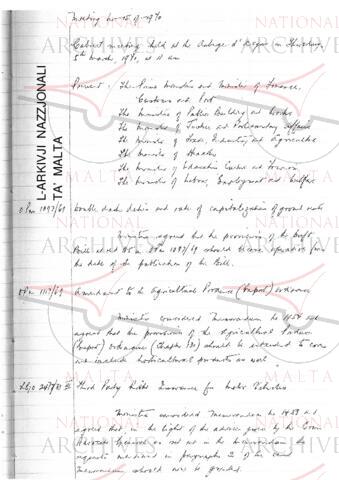 Meeting No 15 of 1970
Cabinet meeting held at the Auberge d'Aragon on Thursday,
5th March, 1970, at 11 am
Present: The Prime Minister and Minister of Finance,
Customs and Port
The Minister of Public Building and Works
The Minister of Justice and Parliamentary Affairs
The Minister of Trade, Industry and Agriculture
The Minister of Health
The Minister of Education, Culture and Tourism
The Minister of Labour, Employment and Welfare
OPM 1097/69 death duties and rate of capitalization of ground rents
Ministers agreed that the provisions of the draft
Bill at red 85 in OPM 1097/69 should become operative from
the date of the publication of the Bill.
OPM 1117/69 Amendment to the Agricultural Produce (Export) Ordinance
Ministers considered Memorandum No 1454 and
agreed that the provisions of the Agricultural Produce
(Export) Ordinance (Chapter 130) should be extended to cover
and include horticultural products as well
Third Party Risks Insurance for Motor Vehicles
Ministers considered Memorandum No 1453 and
agreed that, in the light of the advice given by the Crown
Advocate General as set out in the memorandum, the
requests mentioned in paragraph 2 of the said
Memorandum should not be granted.
L-ARKIVJI NAZZJONALI
TA' MALTA
NATIONAL
ARCHIVES
MALTA